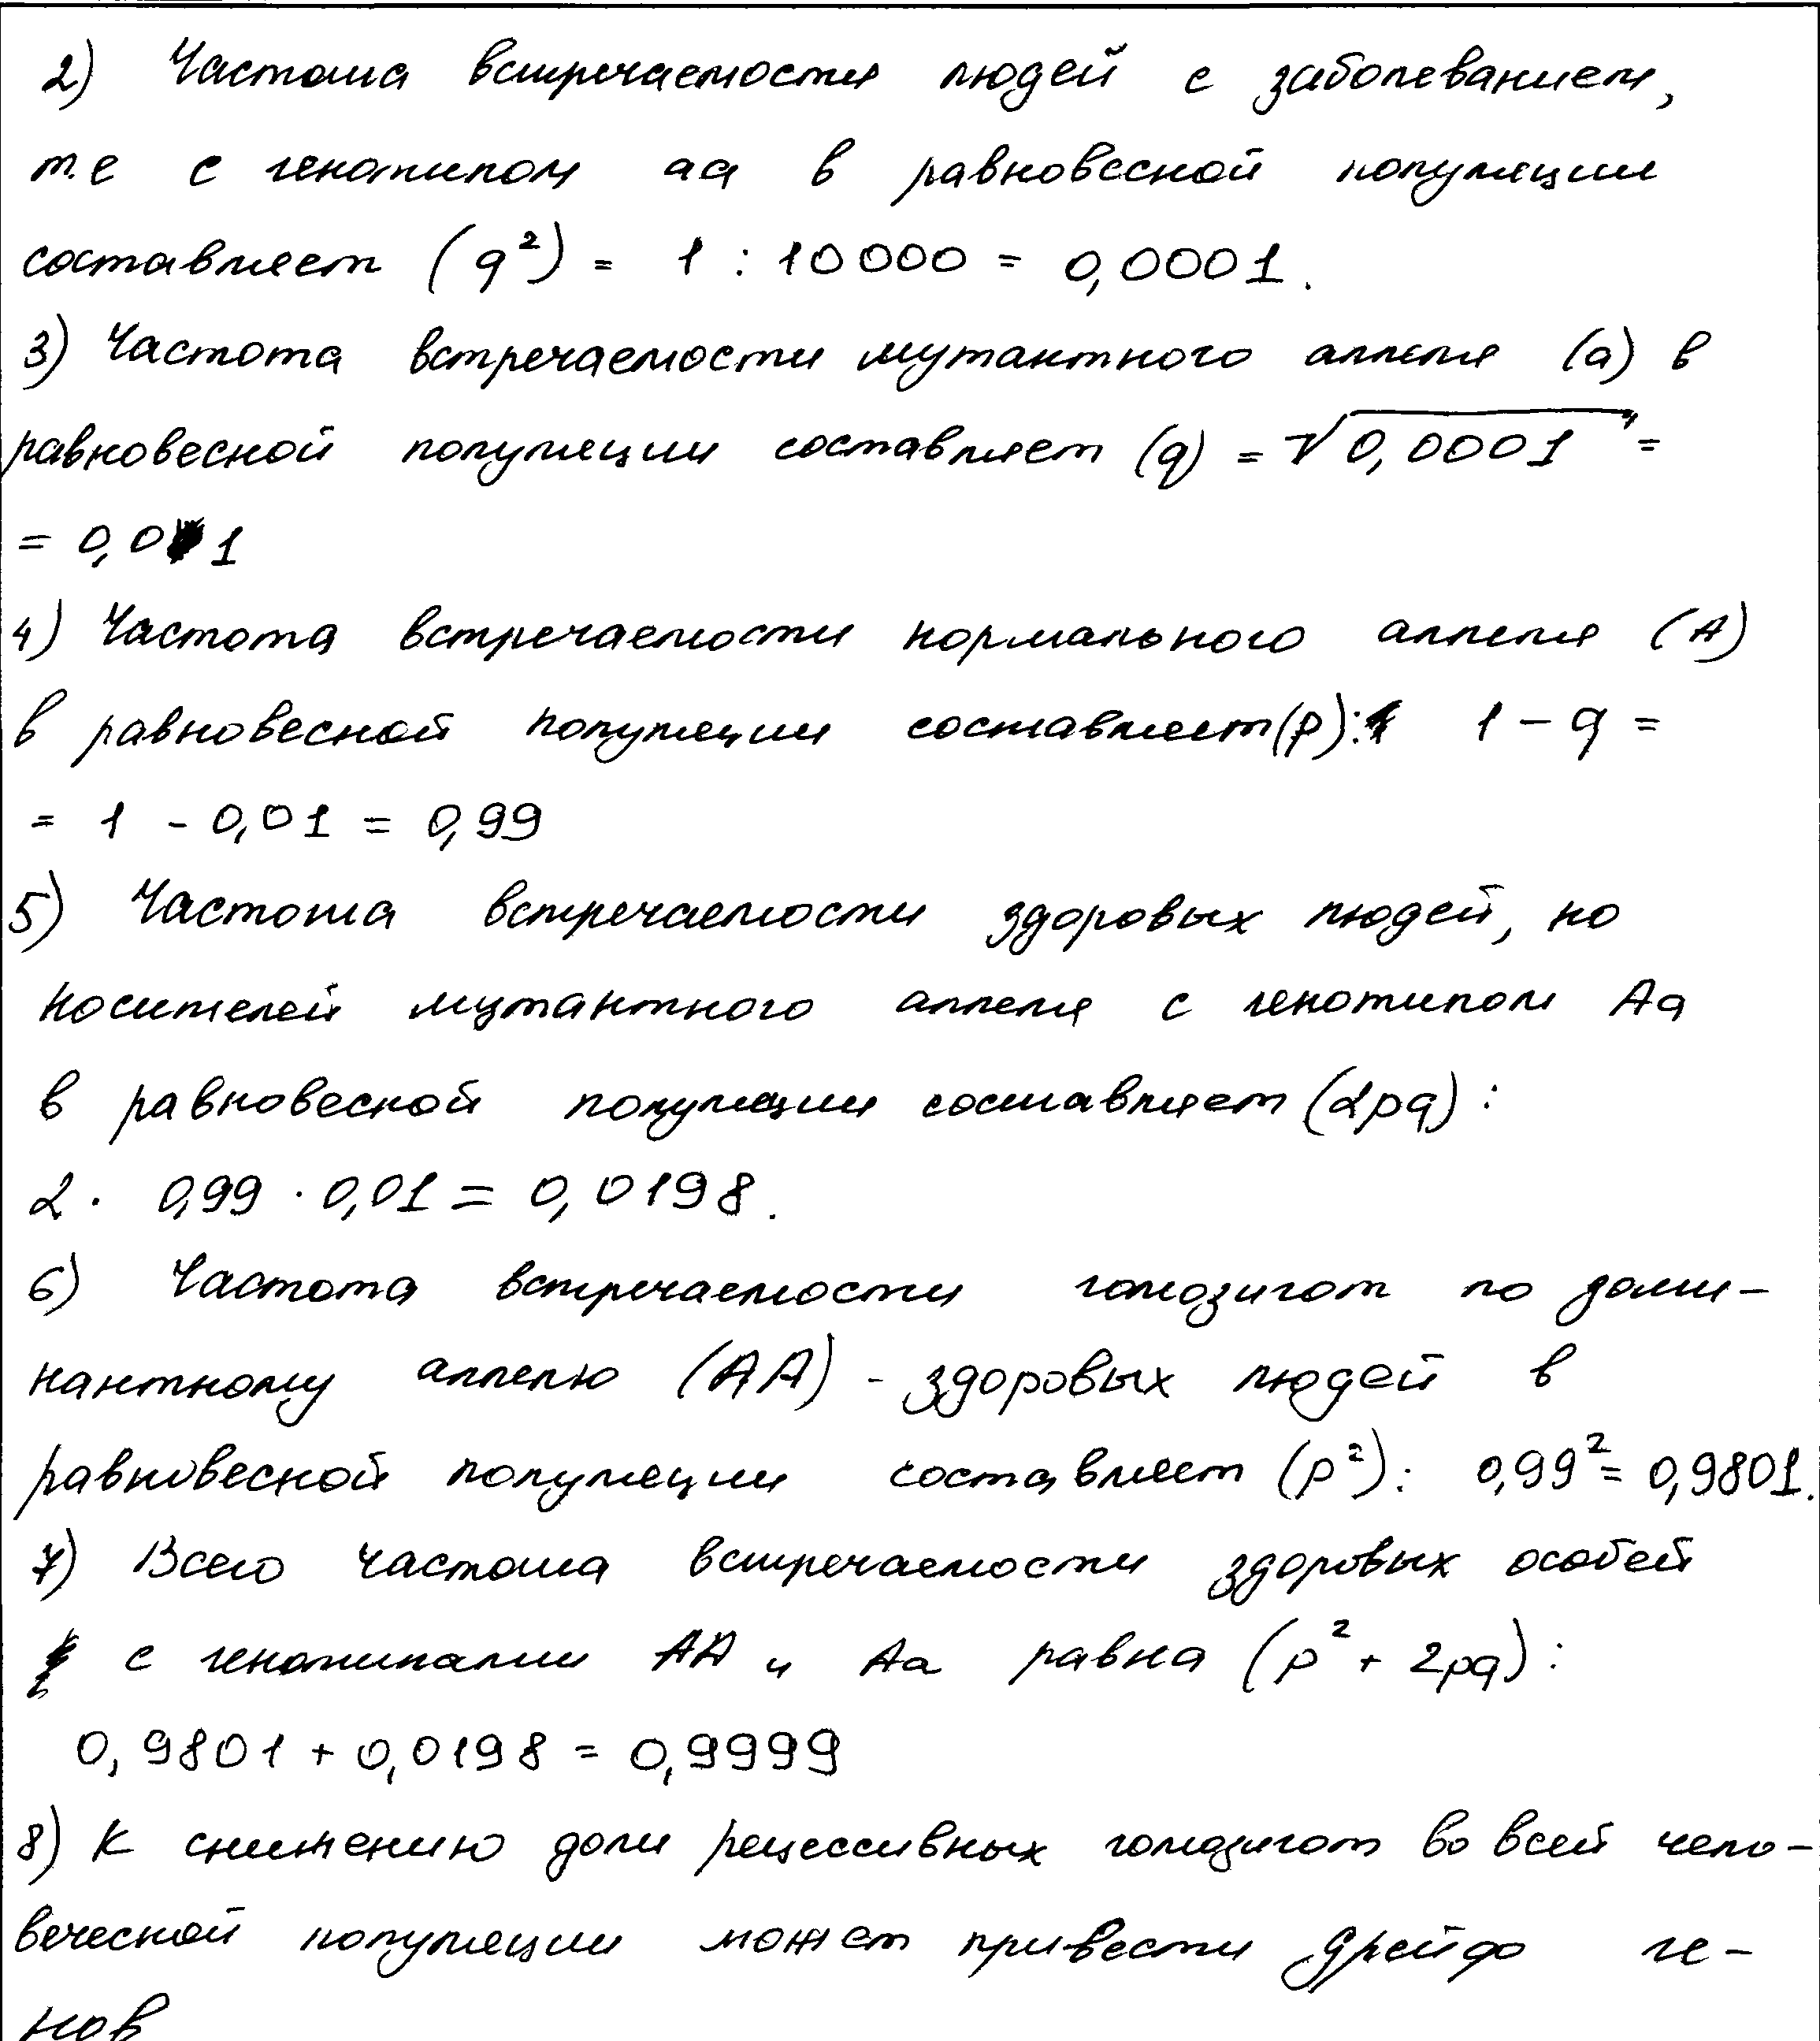 2) Частота встречаемости людей с заболеванием,
т.е с генотипом аа в равновесной популяции
составляет (q²) = 1 : 10000 = 0,0001.
3) Частота встречаемости мутантного аллеля (а) в
равновесной популяции составляет (q) = √0,0001 =
= 0,01
4) Частота встречаемости нормального аллеля (А)
в равновесной популяции составляет (p): 1 - q =
= 1 - 0,01 = 0,99
5) Частота встречаемости здоровых людей, но
носителей мутантного аллеля с генотипом Аа
в равновесной популяции составляет (2pq):
2 · 0,99 · 0,01 = 0,0198.
6) Частота встречаемости гомозигот по доми-
нантному аллелю (АА) - здоровых людей в
равновесной популяции составляет (p²): 0,99² = 0,9801.
7) Всего частота встречаемости здоровых особей
с генотипами АА и Аа равна (p² + 2pq):
0,9801 + 0,0198 = 0,9999
8) К снижению доли рецессивных гомозигот во всей чело-
веческой популяции может привести дрейф ге-
нов